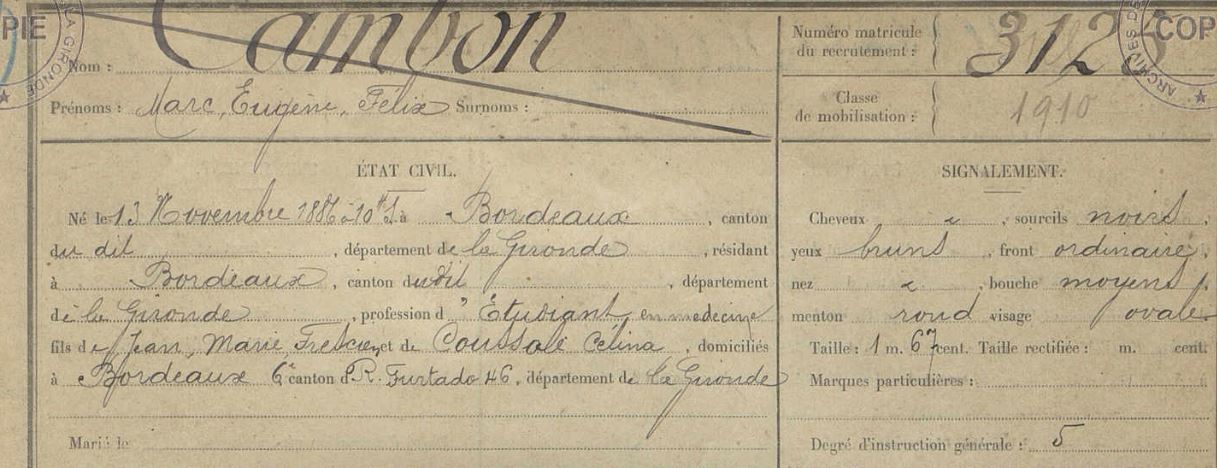 PIE
LA GIRONDE
Nom : Cambon
Prénoms : Marc, Eugène, Félix Surnoms :
Numéro matricule du recrutement : 3128
COP
ARCHIVES DE
Classe de mobilisation : 1910
ÉTAT CIVIL.
Né le 13 Novembre 1886 à 10 h S. à Bordeaux, canton
du dit, département de la Gironde, résidant
à Bordeaux, canton dudit, département
de la Gironde, profession d'Étudiant en médecine
fils de Jean, Marie, et de Célina, domiciliés
à Bordeaux 6e canton d R. Furtado 46, département de la Gironde
Marié le
SIGNALEMENT.
Cheveux , sourcils noirs,
yeux bruns, front ordinaire,
nez , bouche moyens,
menton rond visage ovale
Taille : 1 m. 67 cent. Taille rectifiée : m. cent.
Marques particulières :
Degré d'instruction générale : 5